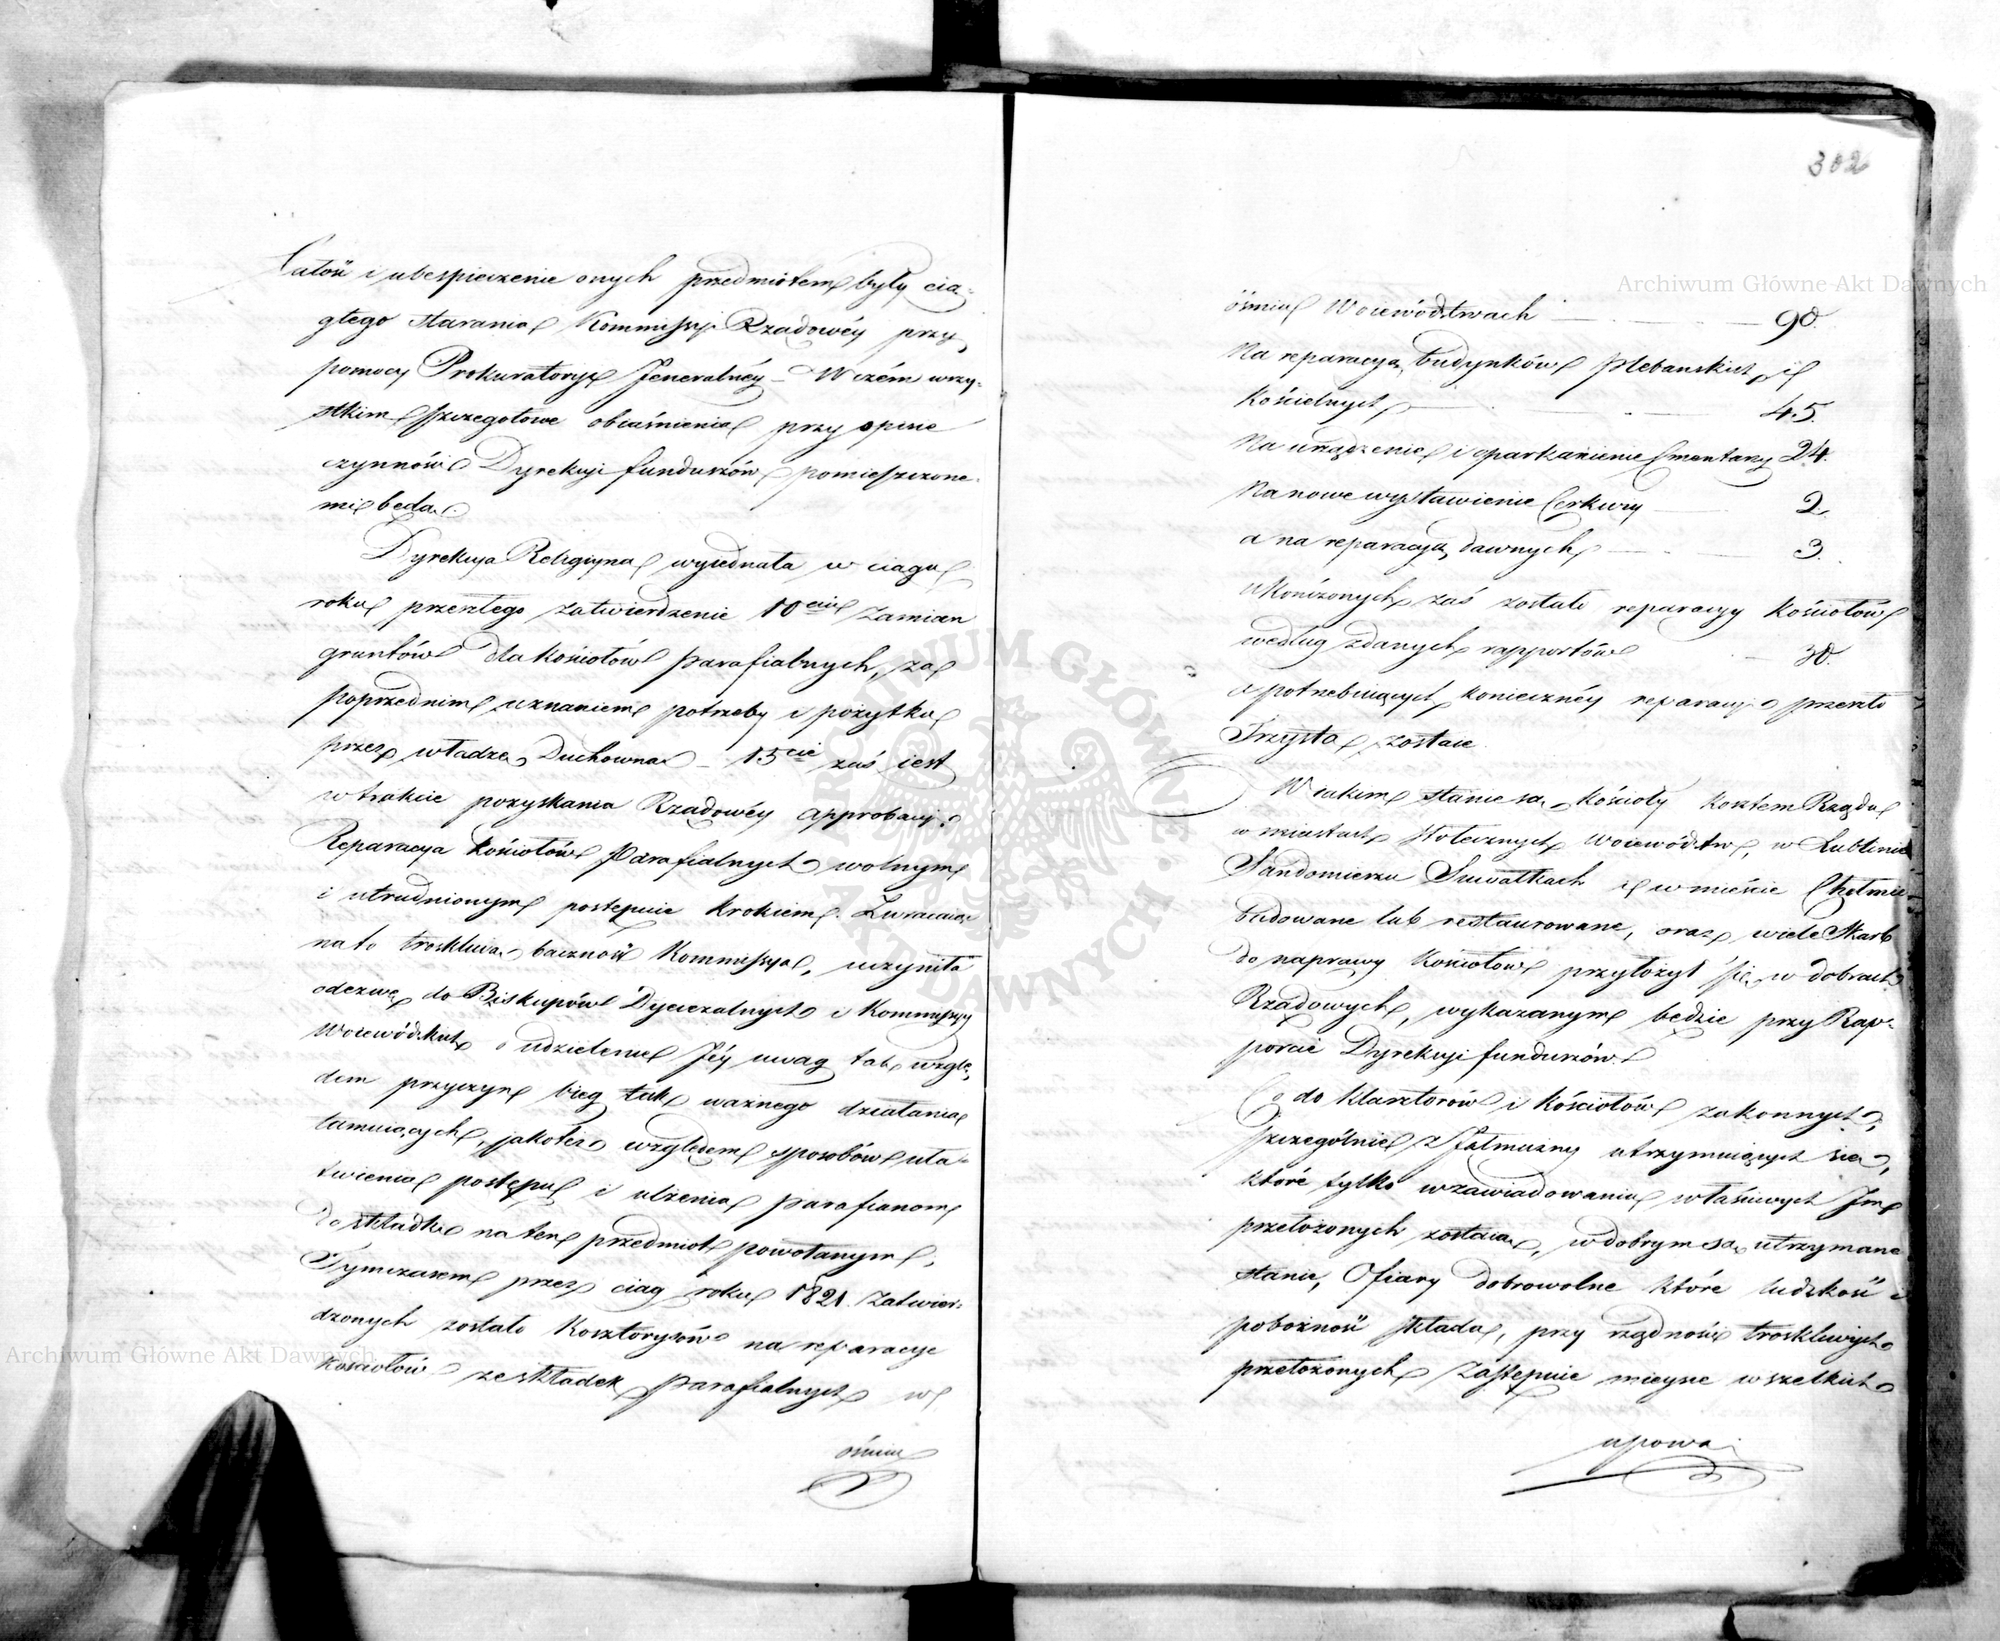 Całość i ubespieczenie onych przedmiotem były cią-
głego starania Kommissyi Rządowéy przy
pomocy Prokuratoryi Jeneralnéy – W czém wszy-
stkiem szczegołowe obiaśnienia przy opisie
czynności Dyrekcyi funduszów pomieszczone-
mi będą.
Dyrekcya Religiyna wyiednała w ciągu
roku przeszłego zatwierdzenie 10ciu zamian
gruntów dla kościołów parafialnych, za
poprzedniem uznaniem potrzeby i pożytku
przez władzę Duchowną – 15cie zaś iest
w trakcie pozyskania Rządowéy approbacyi.
Reparacya kościołów Parafialnych wolnym
i utrudnionym postępuie krokiem. Zwracaiąc
na to troskliwą baczność Kommissya, uczyniła
odezwę do Biskupów Dyecezalnych i Kommissyy
Woiewódzkich o udzielenie Jéy uwag tak wzglę-
dem przyczyn bieg tak ważnego działania
tamuiących, jakoteż względem sposobów uła-
twienia postępu i ulżenia parafianom
do składki na ten przedmiot powołanym.
Tymczasem przez ciąg roku 1821. zatwier-
dzonych zostało Kosztorysów na reparacye
kościołów ze składek parafialnych w
ośmiu
302
ośmiu Woiewództwach — 90.
Na reparacyą budynków Plebańskich i
Kościelnych — 45.
Na urządzenie i oparkanienie Cmentarzy 24.
Na nowe wystawienie Cerkwy — 2.
a na reparacyą dawnych — 3.
Ukończonych zaś zostało reparacyy Kościołów
według zdanych rapportów — 30.
a potrzebuiących konieczney reparacyi przeszło
Trzysta zostaie.
W iakim stanie są kościoły kosztem Rządu
w miastach stołecznych Woiewództw, w Lublinie
Sandomierzu Suwałkach i w mieście Chełmie
budowane lub restaurowane, oraz wiele Skarb
do naprawy Kościołów przyłożył się w dobrach
Rządowych, wykazanym będzie przy Rap-
porcie Dyrekcyi funduszów.
Co do Klasztorów i Kościołów zakonnych,
szczególnie z Jałmużny utrzymuiących się,
które tylko w zawiadowaniu właściwych Im
przełożonych zostaią, w dobrym są utrzymane
stanie, Ofiary dobrowolne które ludzkość i
pobożność składa, przy rządności troskliwych
przełożonych zastępuie mieysce wszelkich
upowa-
Archiwum Główne Akt Dawnych
Archiwum Główne Akt Dawnych
ARCHIWUM GŁÓWNE AKT DAWNYCH